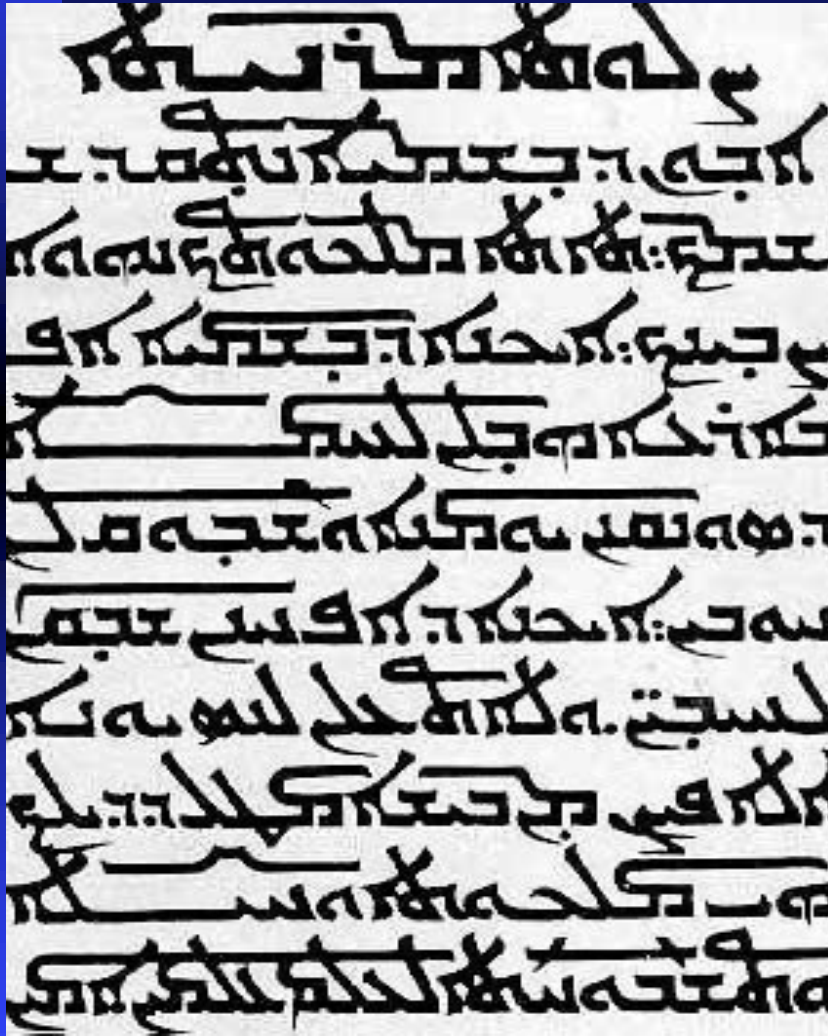 ܨܠܘܬܐ ܡܪܢܝܬܐ
ܐܒܘܢ ܕܒܫܡܝܐ ܢܬܩܕܫ
ܫܡܟ: ܬܐܬܐ ܡܠܟܘܬܟ ܢܗܘܐ
ܨܒܝܢܟ: ܐܝܟܢܐ ܕܒܫܡܝܐ ܐܦ
ܒܐܪܥܐ ܗܒ ܠܢ ܠܚܡܐ
ܕܣܘܢܩܢܢ ܝܘܡܢܐ ܘܫܒܘܩ ܠܢ
ܚܘܒܝܢ: ܐܝܟܢܐ ܕܐܦ ܚܢܢ ܫܒܩܢ
ܠܚܝܒܝ̈ܢ. ܘܠܐ ܬܥܠܢ ܠܢܣܝܘܢܐ
ܐܠܐ ܦܨܢ ܡܢ ܒܝܫܐ ܡܛܠ ܕܕܝܠܟ
ܗܝ ܡܠܟܘܬܐ ܘܚܝܠܐ
ܘܬܫܒܘܚܬܐ ܠܥܠܡ ܥܠܡܝܢ ܐܡܝܢ